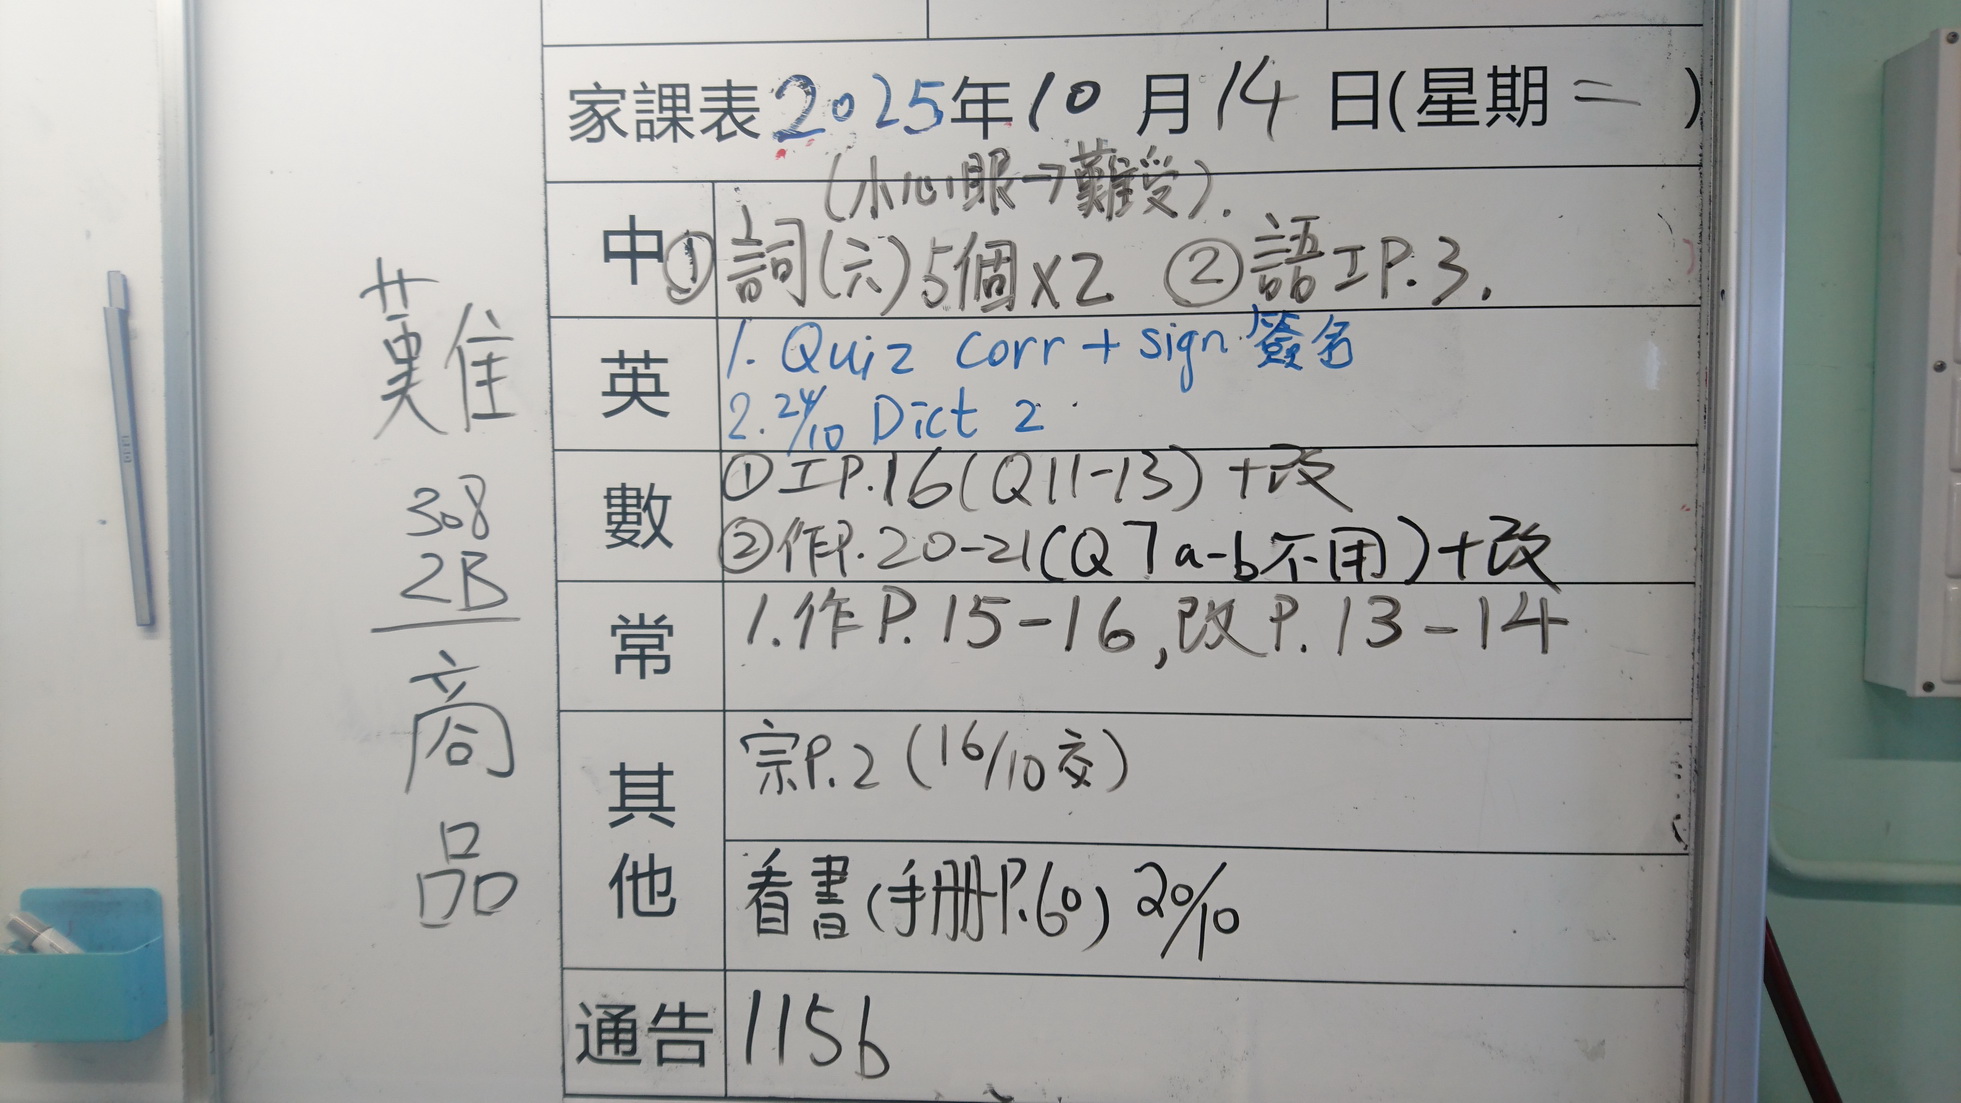 家課表2025年10月14日(星期二)
(小心眼→難受).
中 ①詞(六)5個x2 ②語工P.3.
英 1. Quiz corr + sign 簽名
2. 24/10 Dict 2
數 ①工P.16(Q11-13)+改
②作P.20-21(Q7a-b不用)+改
常 1.作P.15-16,改P.13-14
其他 宗P.2(16/10交)
看書(手册P.60) 20/10
通告 1156
難
308
2B
商
品